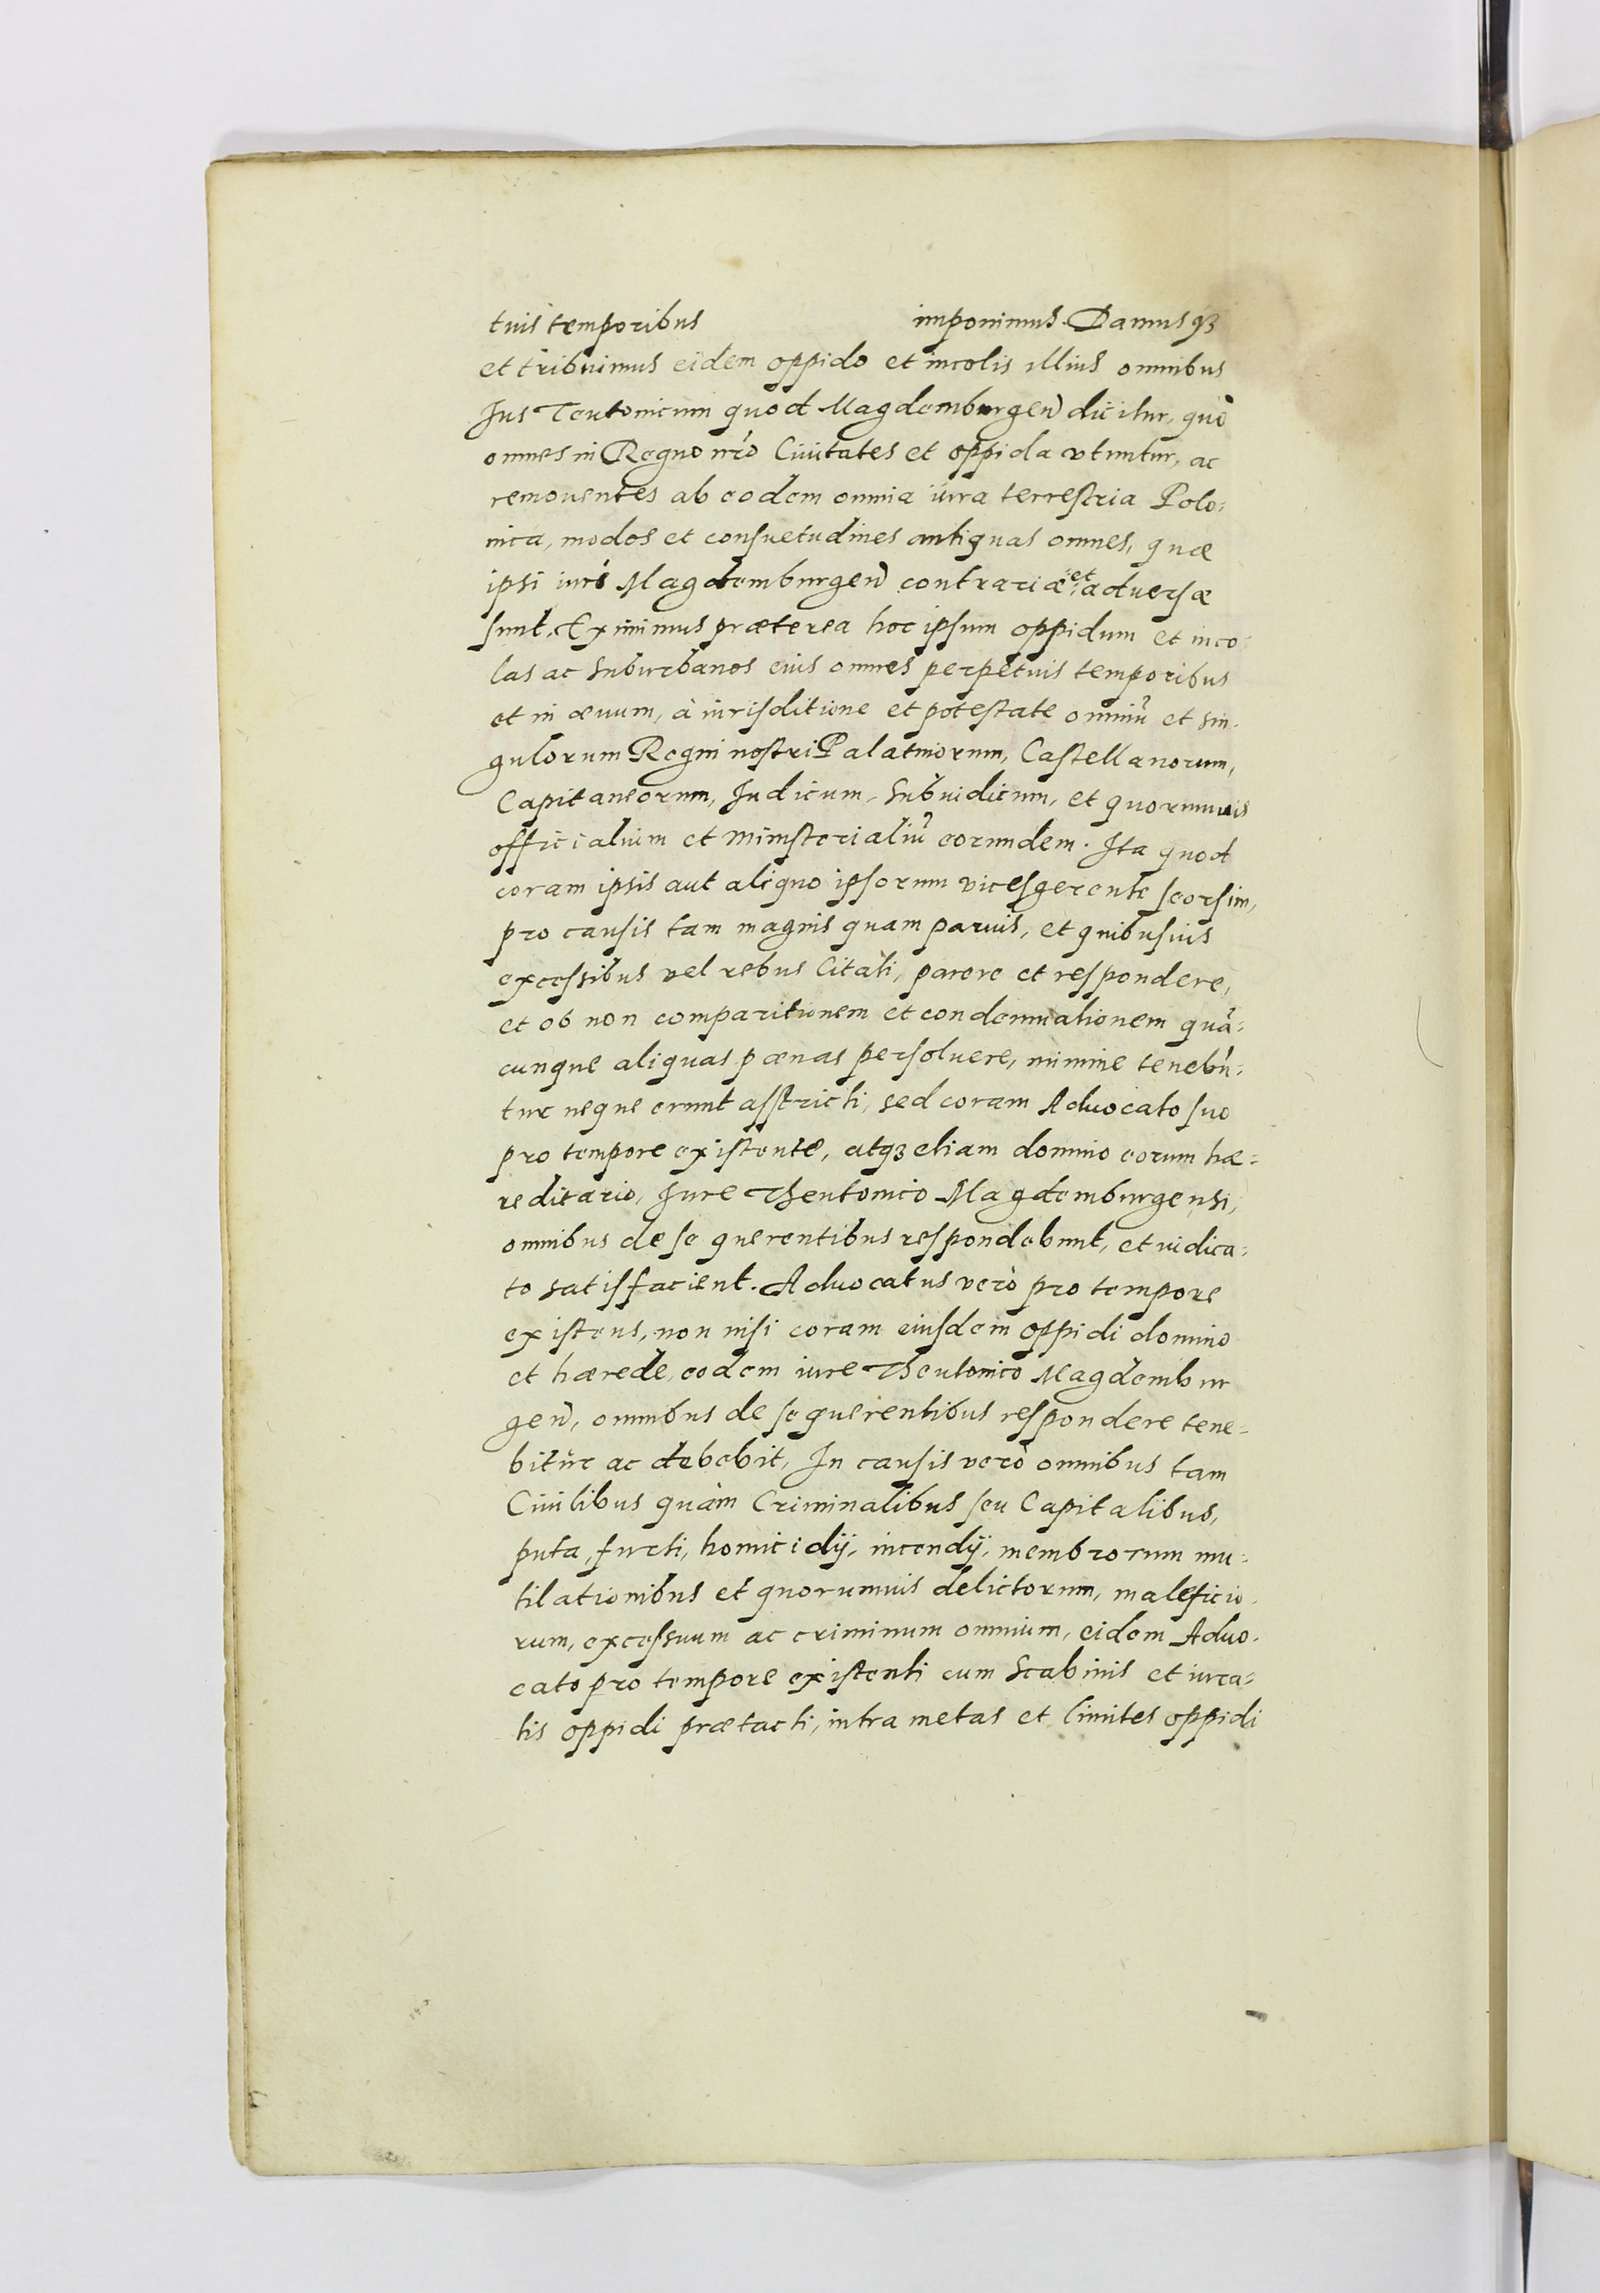 tuis temporibus imponimus. Damusqȝ
et tribuimus eidem oppido et incolis illius omnibus
Jus Teutonicum quod Magdemburgen̄ dicitur, quò
omnes in Regno nr̃o Ciuitates et oppida vtuntur, ac
remouentes ab eodem omnia iura terrestria Polo-
nica, modos et consuetudines antiquas omnes, quæ
ipsi iuri Magdemburgen̄ contrariæ et aduersæ
sunt, Eximimus præterea hoc ipsum oppidum et inco-
las ac suburbanos eius omnes perpetuis temporibus
et in æuum, à iurisditione et potestate omniũ et sin-
gulorum Regni nostri Palatinorum, Castellanorum,
Capitaneorum, Judicum, Subiudicum, et quorumuis
officialium et ministerialiũ eorundem. Ita quod
coram ipsis aut aliquo ipsorum vicesgerente seorsim,
pro causis tam magnis quam paruis, et quibusuis
excessibus vel rebus Citati, parere et respondere,
et ob non comparitionem et condemnationem quã-
cunque aliquas pœnas persoluere, minime tenebũ-
tur neque erunt astricti, sed coram Aduocato suo
pro tempore existente, atqȝ etiam domino eorum hæ-
reditario, Jure Theutonico Magdemburgensi,
omnibus de se querentibus respondebunt, et iudica-
to satisfacient. Aduocatus verò pro tempore
existens, non nisi coram eiusdem oppidi domino
et hærede, eodem iure Theutonico Magdembur
gen̄, omnibus de se querentibus respondere tene-
bitur ac debebit, In causis verò omnibus tam
Ciuilibus quàm Criminalibus seu Capitalibus,
puta, furti, homicidij, incendij, membrorum mu-
tilationibus et quorumuis delictorum, maleficio-
rum, excessuum ac criminum omnium, eidem Aduo-
cato pro tempore existenti cum Scabinis et iura-
tis oppidi prætacti, intra metas et limites oppidi